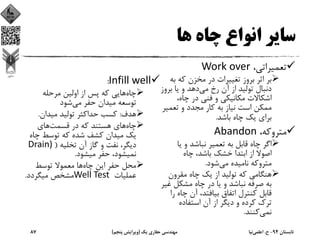 سایر انواع چاه ها
✓تعمیراتی، Work over
➢بر اثر بروز تغییرات در مخزن که به
دنبال تولید از آن رخ می‌دهد و یا بروز
اشکالات مکانیکی و فنی در چاه،
ممکن است نیاز به کار مجدد و تعمیر
برای یک چاه باشد.
✓متروکه، Abandon
➢اگر چاه قابل به تعمیر نباشد و یا
اصولا از ابتدا خشک باشد، چاه
متروکه نامیده می‌شود.
➢هنگامی که تولید از یک چاه مقرون
به صرفه نباشد و یا در چاه مشکل غیر
قابل کنترل اتفاق بیافتد، آن چاه را
ترک کرده و دیگر از آن استفاده
نمی‌کنند.
✓Infill well:
➢چاه‌هایی که پس از اولین مرحله
توسعه میدان حفر می‌شود
➢هدف: کسب حداکثر تولید میدان.
➢چاه‌های هستند که در قسمت‌های
یک میدان کشف شده که توسط چاه
دیگر، نفت و گاز آن تخلیه (Drain)
نمیشود، حفر میشود.
➢محل حفر این چاه‌ها معمولا توسط
عملیات Well Test مشخص میگردد.
تابستان ۹۲-ح اعلمی‌نیا
مهندسی حفاری یک (ویرایش پنجم)
۸۷